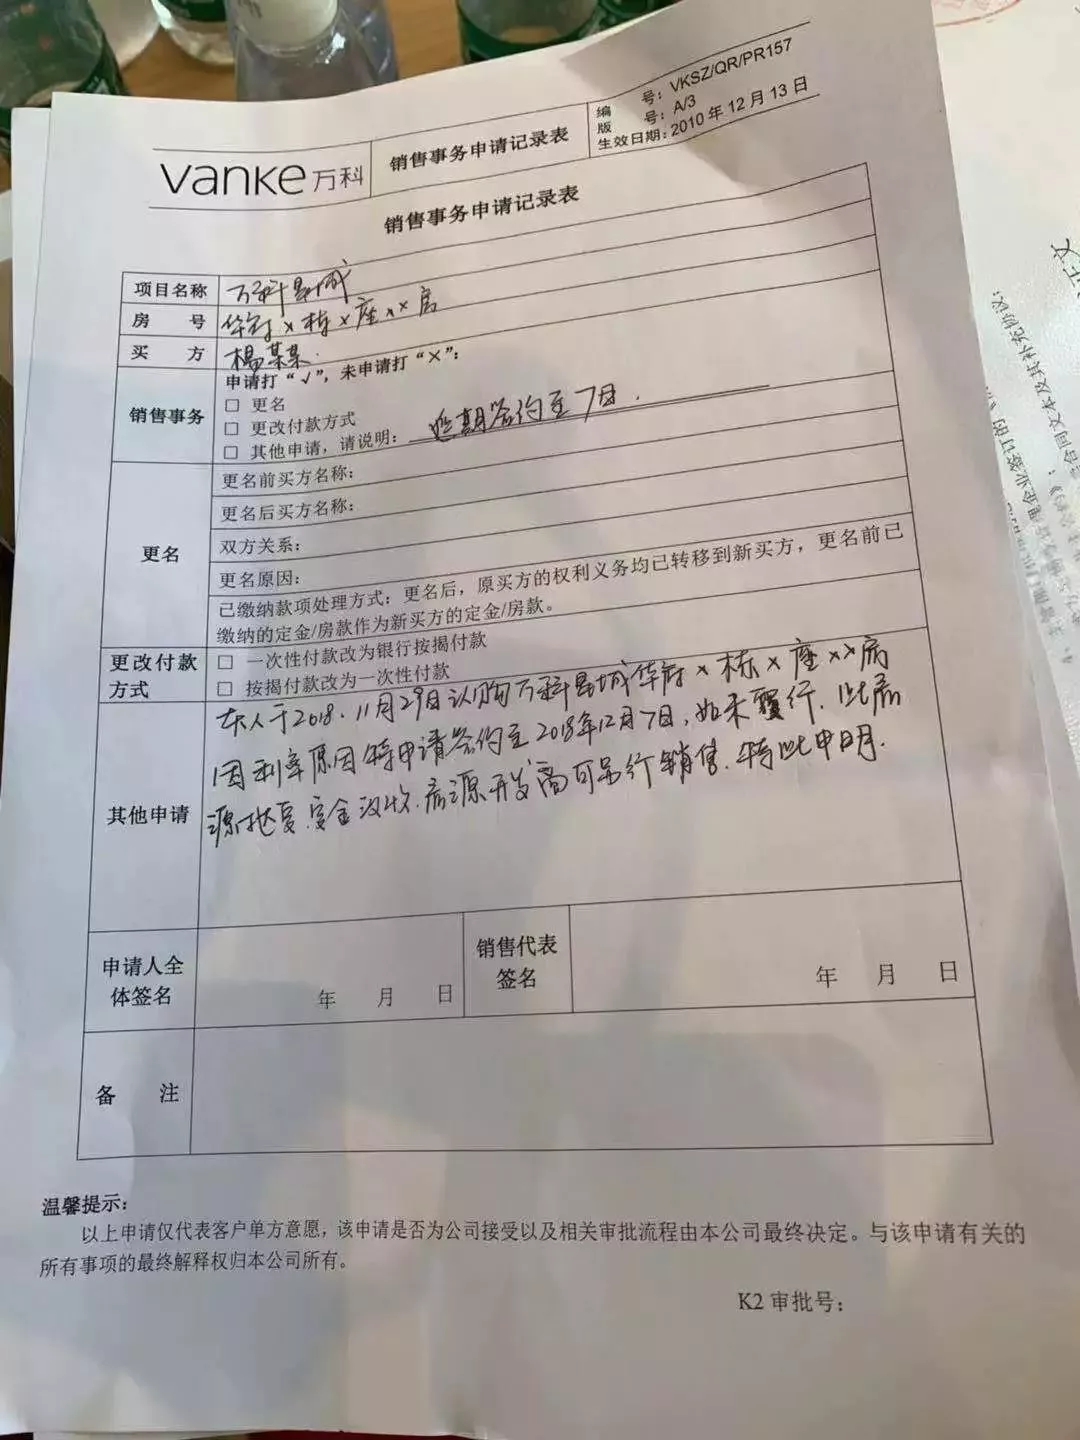 vanke 万科
销售事务申请记录表
编 号：VKSZ/QR/PR157
版 号：A/3
生效日期：2010 年 12 月 13 日
销售事务申请记录表
项目名称 万科星城
房 号 华府×栋×座××房
买 方 杨某某.
销售事务
申请打“√”，未申请打“×”：
□ 更名
□ 更改付款方式
□ 其他申请，请说明： 延期签约至7日.
更名
更名前买方名称：
更名后买方名称：
双方关系：
更名原因：
已缴纳款项处理方式：更名后，原买方的权利义务均已转移到新买方，更名前已
缴纳的定金/房款作为新买方的定金/房款。
更改付款
方式
□ 一次性付款改为银行按揭付款
□ 按揭付款改为一次性付款
其他申请
本人于2018.11月29日认购万科星城华府×栋×座××房
因利率原因特申请签约至2018年12月7日，如未履行.此房
源挞定.定金没收.房源开发商可另行销售.特此申明.
申请人全
体签名
年 月 日
销售代表
签名
年 月 日
备 注
温馨提示：
以上申请仅代表客户单方意愿，该申请是否为公司接受以及相关审批流程由本公司最终决定。与该申请有关的
所有事项的最终解释权归本公司所有。
K2 审批号：
合同文本及其补充协议：